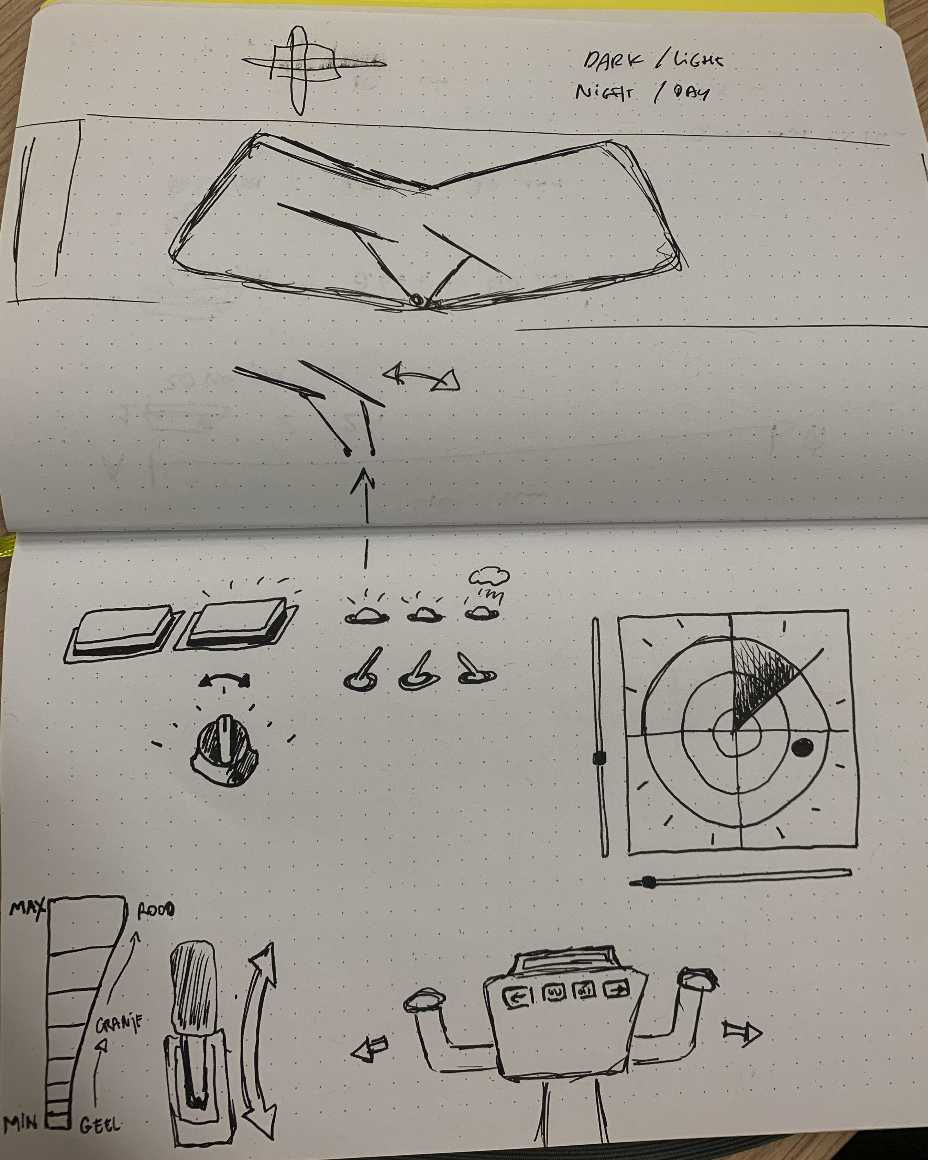 DARK / LIGHT
NIGHT / DAY
MAX
ROOD
ORANJE
MIN
GEEL